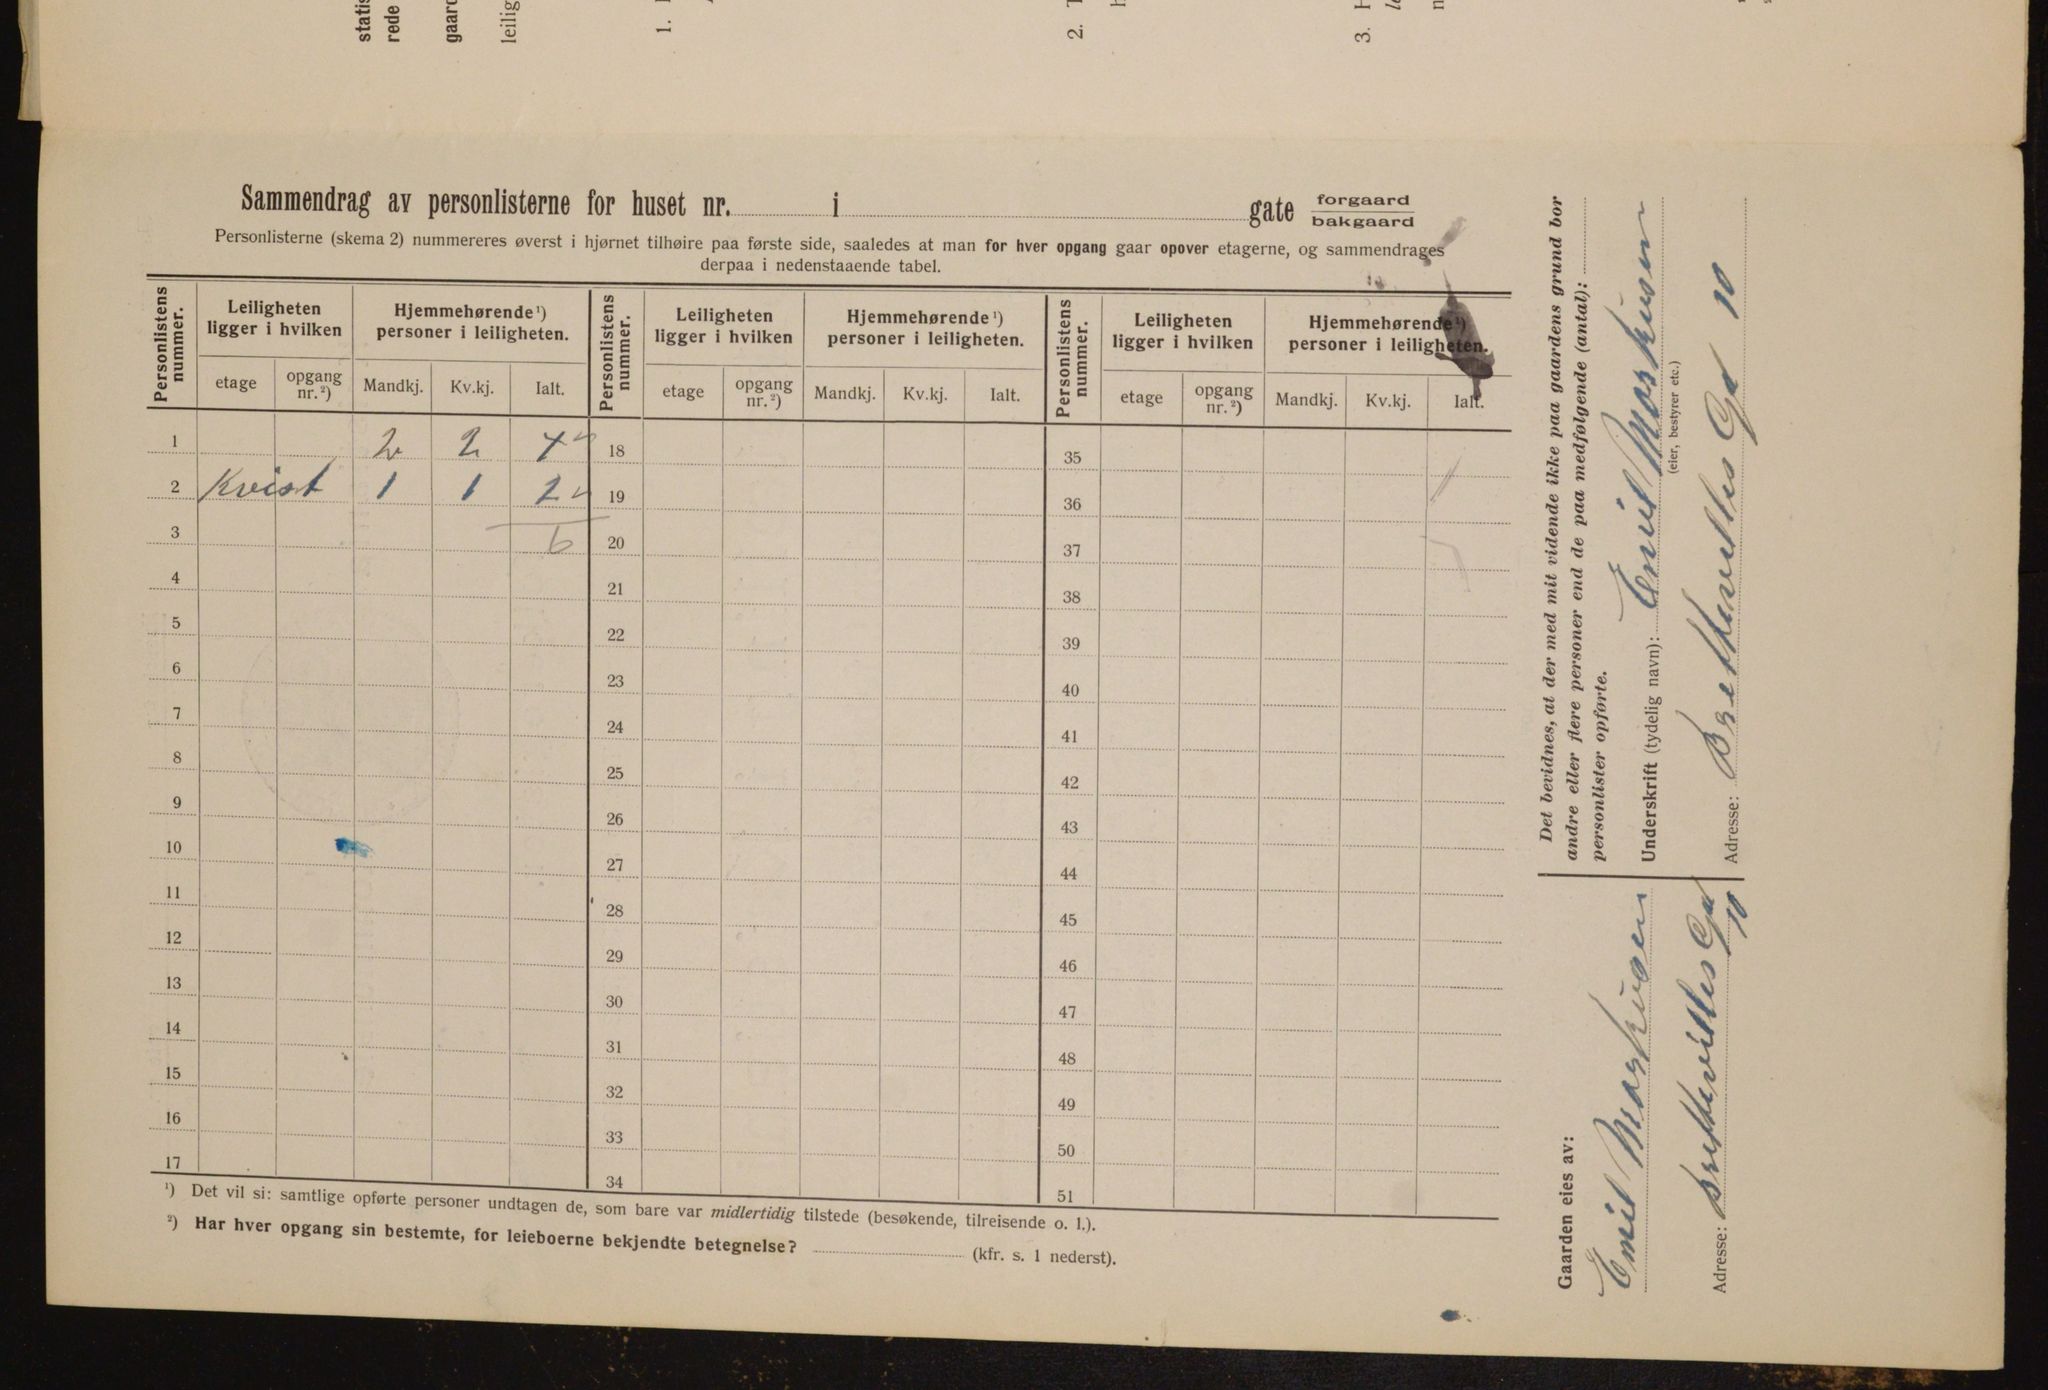 statis
rede
gaard
leilig
1.
2.
3.
Sammendrag av personlisterne for huset nr. i gate forgaard
bakgaard
Personlisterne (skema 2) nummereres øverst i hjørnet tilhøire paa første side, saaledes at man for hver opgang gaar opover etagerne, og sammendrages
derpaa i nedenstaaende tabel.
Personlistens nummer. Leiligheten ligger i hvilken Hjemmehørende ¹) personer i leiligheten. Personlistens nummer. Leiligheten ligger i hvilken Hjemmehørende ¹) personer i leiligheten. Personlistens nummer. Leiligheten ligger i hvilken Hjemmehørende ¹) personer i leiligheten.
etage opgang nr.²) Mandkj. Kv.kj. Ialt. etage opgang nr.²) Mandkj. Kv.kj. Ialt. etage opgang nr.²) Mandkj. Kv.kj. Ialt.
1 2 2 4 18 35
2 Kvist 1 1 2 19 36
3 6 20 37
4 21 38
5 22 39
6 23 40
7 24 41
8 25 42
9 26 43
10 27 44
11 28 45
12 29 46
13 30 47
14 31 48
15 32 49
16 33 50
17 34 51
¹) Det vil si: samtlige opførte personer undtagen de, som bare var midlertidig tilstede (besøkende, tilreisende o. l.).
²) Har hver opgang sin bestemte, for leieboerne bekjendte betegnelse? (kfr. s. 1 nederst).
Gaarden eies av:
Emil
Adresse:
10
Det bevidnes, at der med mit vidende ikke paa gaardens grund bor
andre eller flere personer end de paa medfølgende (antal):
personlister opførte.
Underskrift (tydelig navn): Emil
(eier, bestyrer etc.)
Adresse: 10